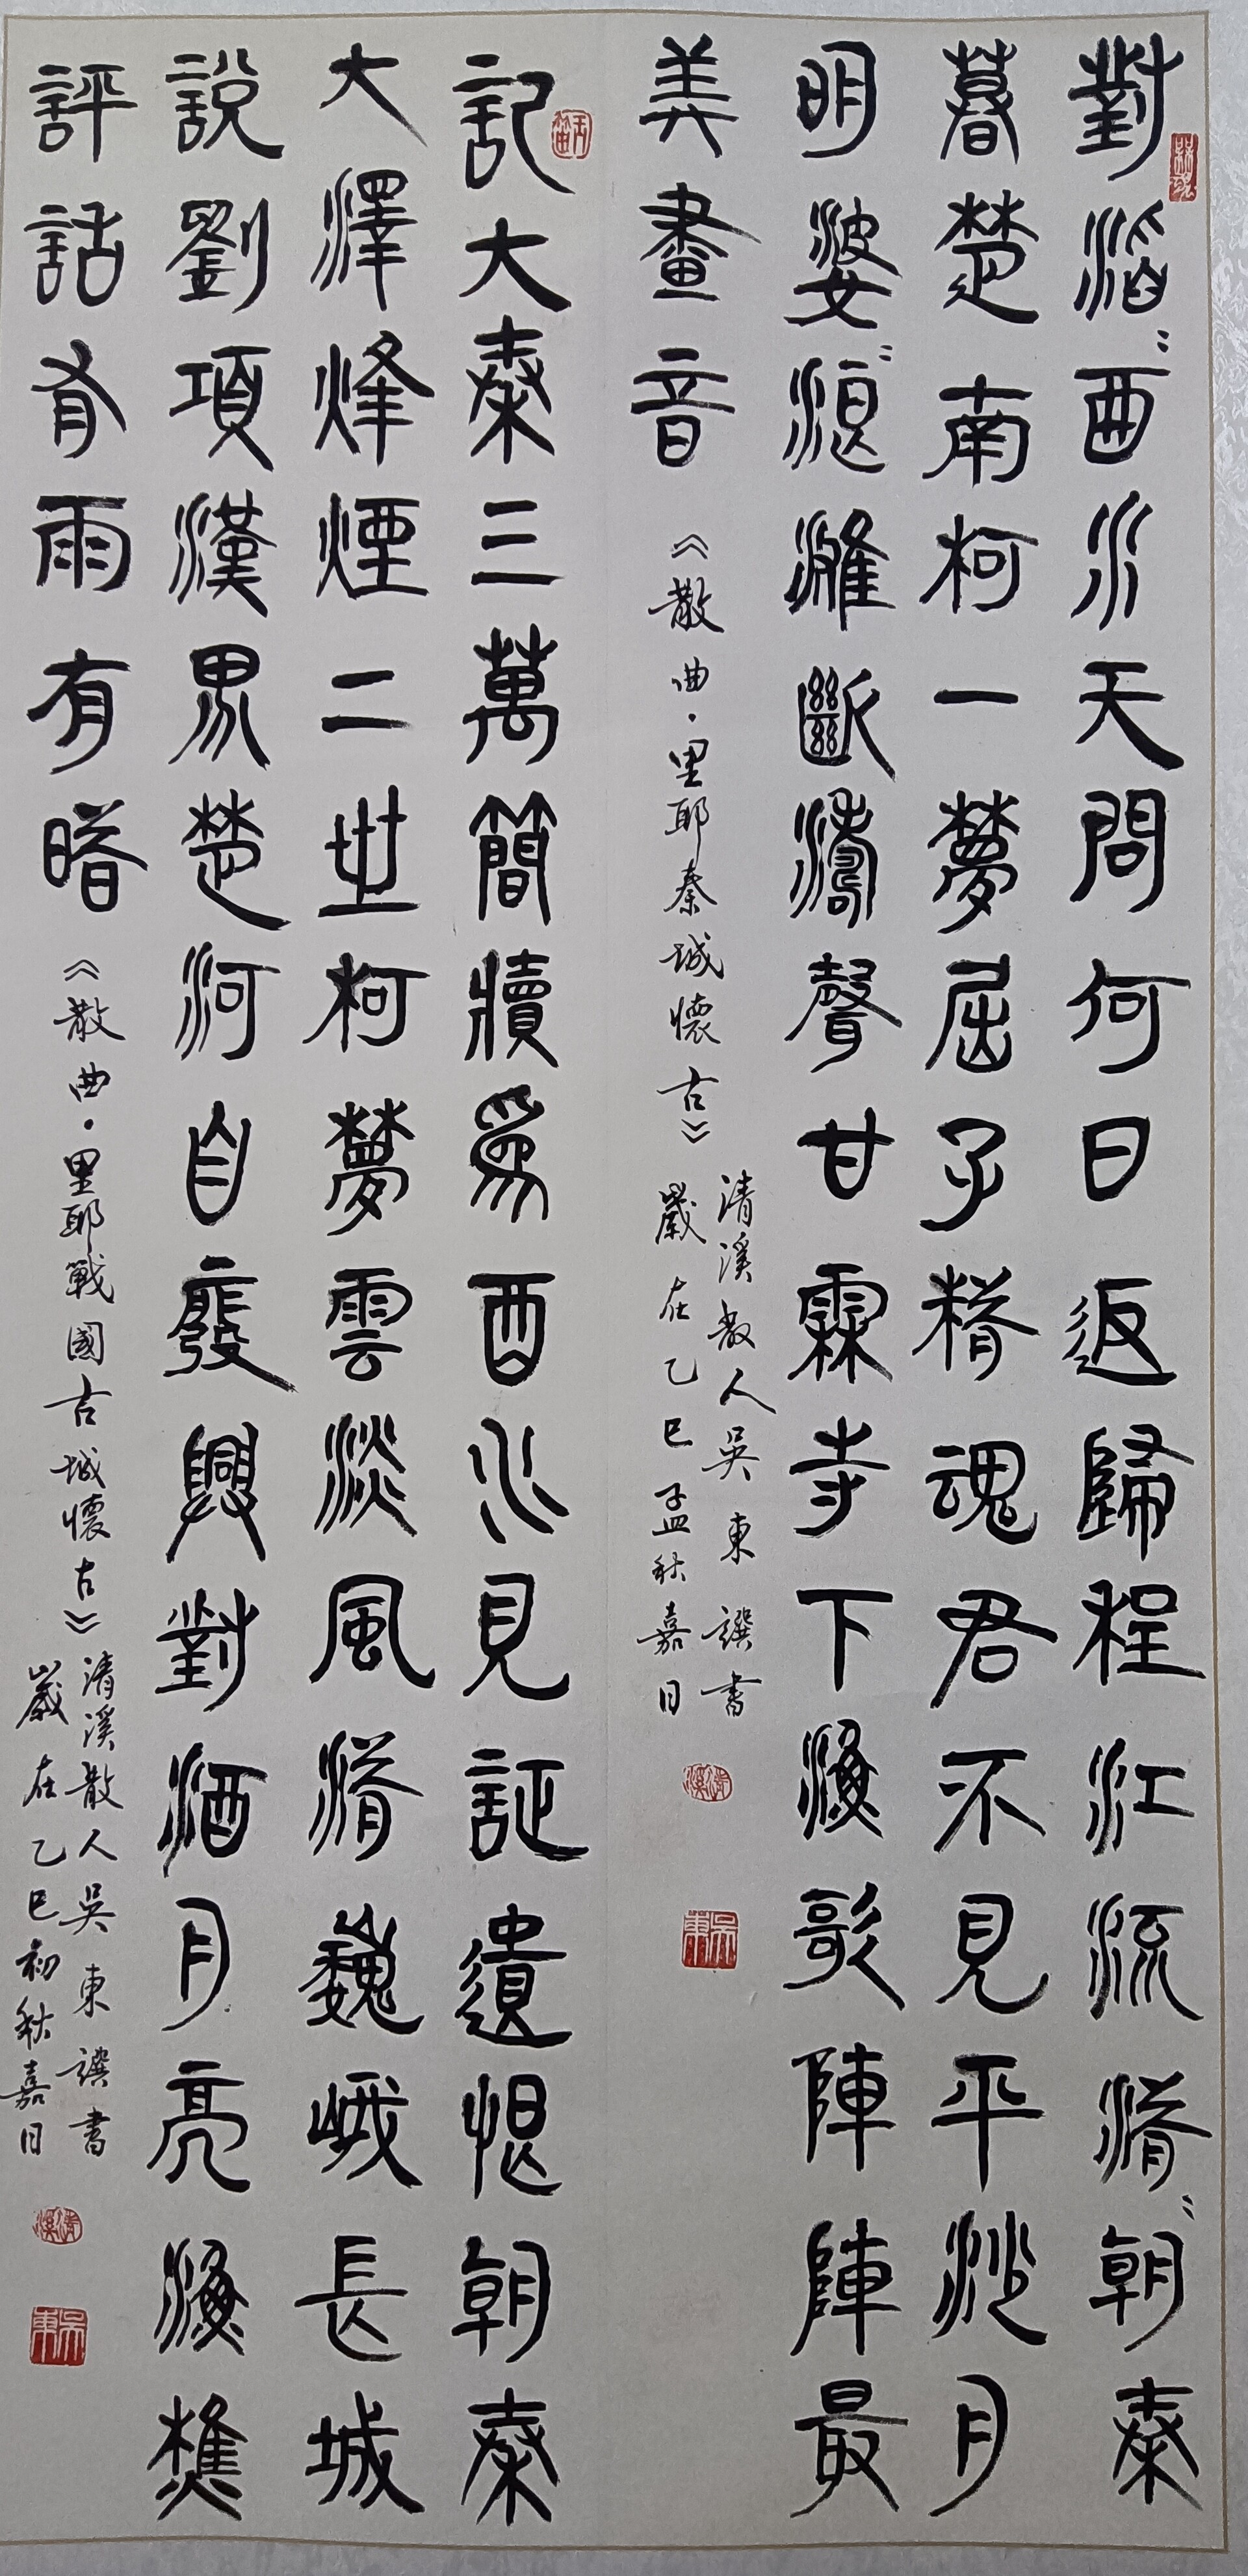 對滔〻酉水天問何日返歸程江流淆〻朝秦
暮楚南柯一夢屈子精魂君不見平沙月
明婆〻浪灘斷濤聲甘霖寺下漁歌陣陣最
美畫音
《散曲·里耶秦城懷古》
清溪散人吳東譔書
歲在乙巳孟秋嘉日
記大秦三萬簡牘為酉水見証遺恨朝秦
大澤烽煙二世柯夢雲淡風清巍峨長城
說劉項漢界楚河自發興對酒月亮漁樵
評話有雨有晴
《散曲·里耶戰國古城懷古》
清溪散人吳東譔書
歲在乙巳初秋嘉日
清溪
吳東
清溪
吳東